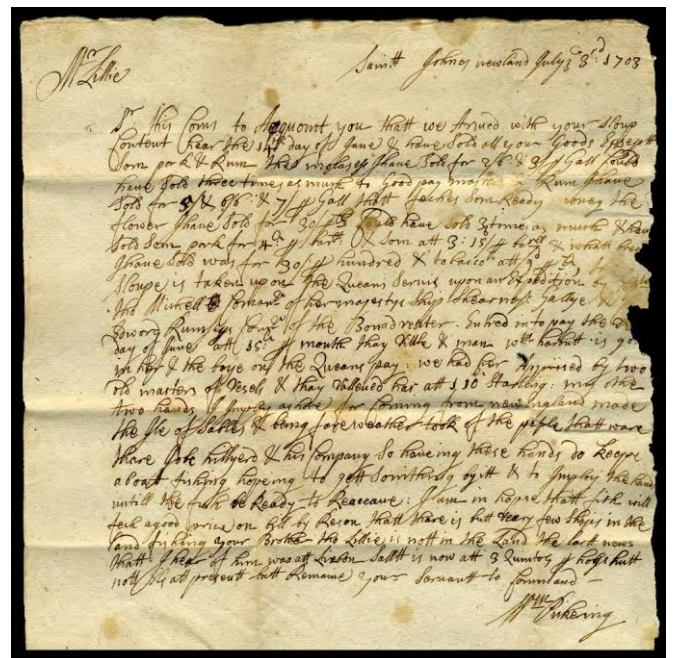 Mr Lillie
Saintt Johnes newland July ye 3rd: 1703
Sr this Coms to Acquaint you thatt we Arived with your Sloup
Content hear the 14th day of June & have Sold all your Goods Exsept
Som pork & Rum the molases I have Sold for 2/6 & 3/ p Gall Could
have Sold three times as much to Good pay masters Rum I have
Sold for & 6/6 & 7/ p Gall thatt fetches Som Ready money the
flower I have Sold for 30/ Could have Sold 3 times as much & have
Sold Som pork for p barll & Som att 3:15/ p barll & whatt
I have Sold was for 30/ p hundred & tobacco att
Sloupe is taken upon the Queans Servis upon an Expedition by
Tho Mitchell Comandr of her majestys Ship Shearness Gallye &
Edword Rumsye of the Bonadventer. Entred into pay the
day of June att p month thay Vittle & man is
in her & the boye on the Queans pay: we had her Apprised by two
old masters of Vesels & thay Vallewed har att 110 Starling: my other
two hands I Imploy ashore for Coming from new England made
the Ile of Sables & being fare weather took of the peple thatt ware
thare hillyerd & his Company So haveing these hands do keepe
a boat fishing hopeing to gett Somthing by itt & to Imploy the hands
untill the fish be Ready to Reaceave: I am in hopse thatt fish will
fech a good price on bill by Reson thatt thare is butt very few Ships in the
land fishing your Brother Tho Lillie is nott in the Land the last news
thatt I hear of him was att Lisbon Saltt is now att 3 Quintls p hogshutt
nott Els att presentt butt Remaine your Servant to Command
Wm Pickering